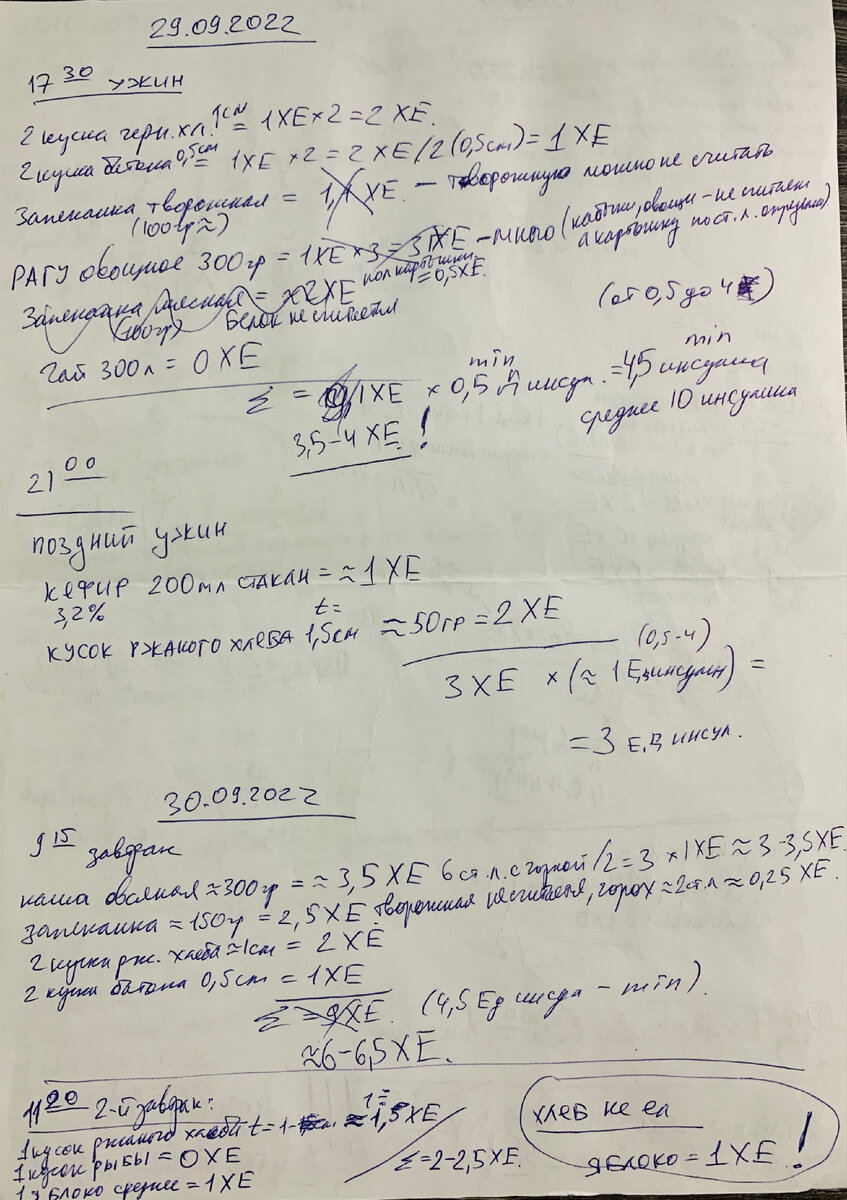 29.09.2022
17 30 ужин
2 куска черн. хл. 1см = 1ХЕ × 2 = 2 ХЕ.
2 куска батона 0,5см = 1ХЕ × 2 = 2 ХЕ / 2 (0,5см) = 1 ХЕ
Запеканка творожная = ХЕ. – творожную можно не считать
(100гр ≈)
РАГУ овощное 300гр = 1ХЕ × 3 = ХЕ – много (кабачки, овощи – не считаем
а картошку по ст. л. определяем).
пол картошки = 0,5ХЕ.
Запеканка мясная = 2ХЕ (от 0,5 до 4)
(100гр) Белок не считается
Чай 300л = 0 ХЕ
Σ = 1ХЕ × 0,5 min инсул. = 4,5 инсулина min
среднее 10 инсулина
3,5–4 ХЕ !
21 00
поздний ужин
кефир 200мл стакан = ≈ 1 ХЕ
3,2%
кусок ржаного хлеба t= 1,5см ≈ 50гр = 2 ХЕ
3 ХЕ × (≈ 1 Ед инсулин) = (0,5-4)
= 3 Е.Д инсул.
30.09.2022
9 15 завтрак
каша овсяная ≈ 300гр = ≈ 3,5 ХЕ 6 ст. л. с горкой / 2 = 3 × 1ХЕ ≈ 3-3,5 ХЕ.
запеканка ≈ 150гр = 2,5 ХЕ. творожная не считается, горох ≈ 2ст.л ≈ 0,25 ХЕ.
2 куска рж. хлеба ≈ 1см = 2 ХЕ
2 куска батона 0,5см = 1ХЕ
Σ = 9ХЕ. (4,5 Ед инсул – min).
≈ 6 – 6,5 ХЕ.
11 20 2-й завтрак:
1 кусок ржаного хлеба t = ≈ 1,5 ХЕ
1 кусок рыбы = 0 ХЕ
1 яблоко среднее = 1ХЕ
Σ = 2-2,5 ХЕ.
хлеб не ел
яблоко = 1 ХЕ !